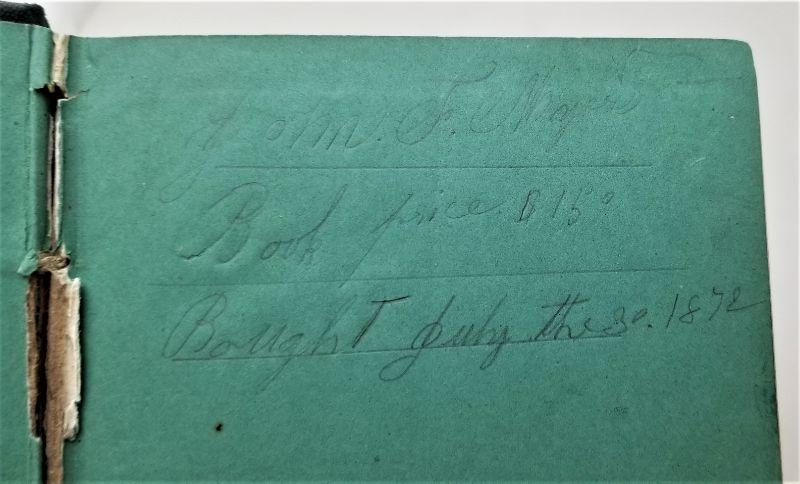 John. F. Moyer
Book price. $ 1 50
Bought July the 30. 1872